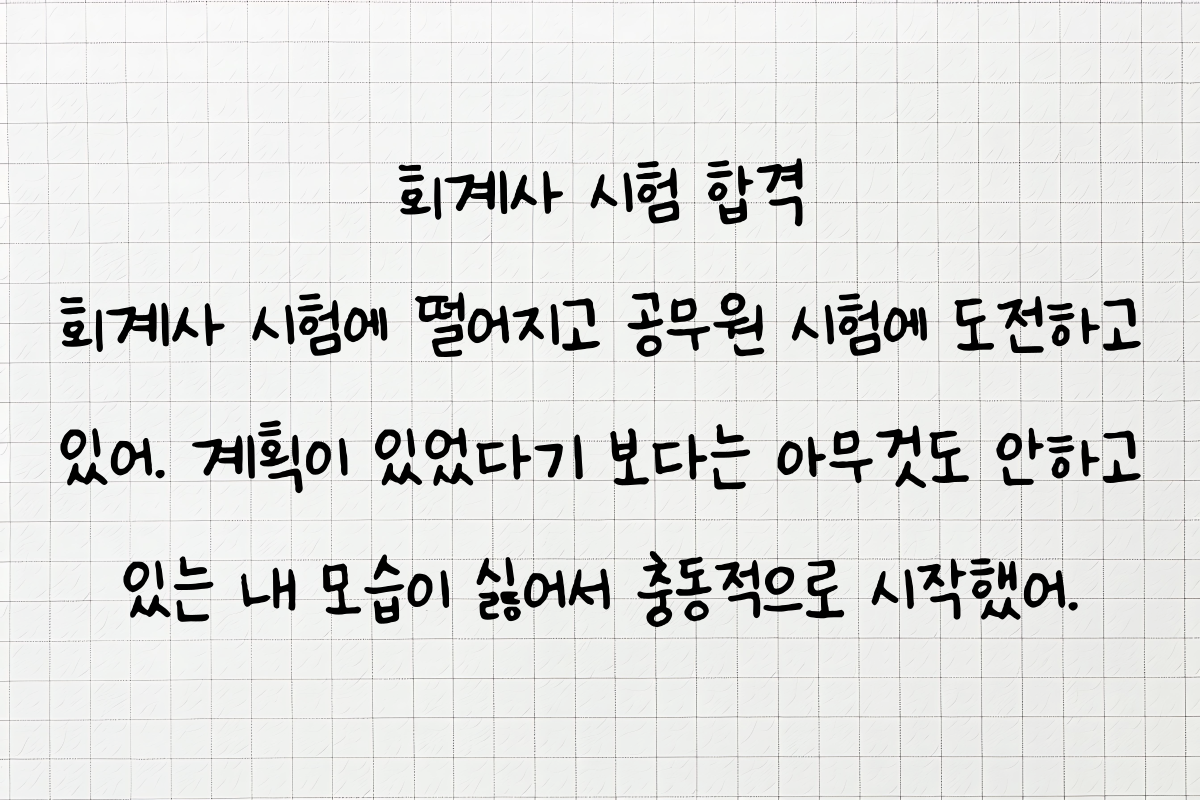 회계사 시험 합격
회계사 시험에 떨어지고 공무원 시험에 도전하고
있어. 계획이 있었다기 보다는 아무것도 안하고
있는 내 모습이 싫어서 충동적으로 시작했어.